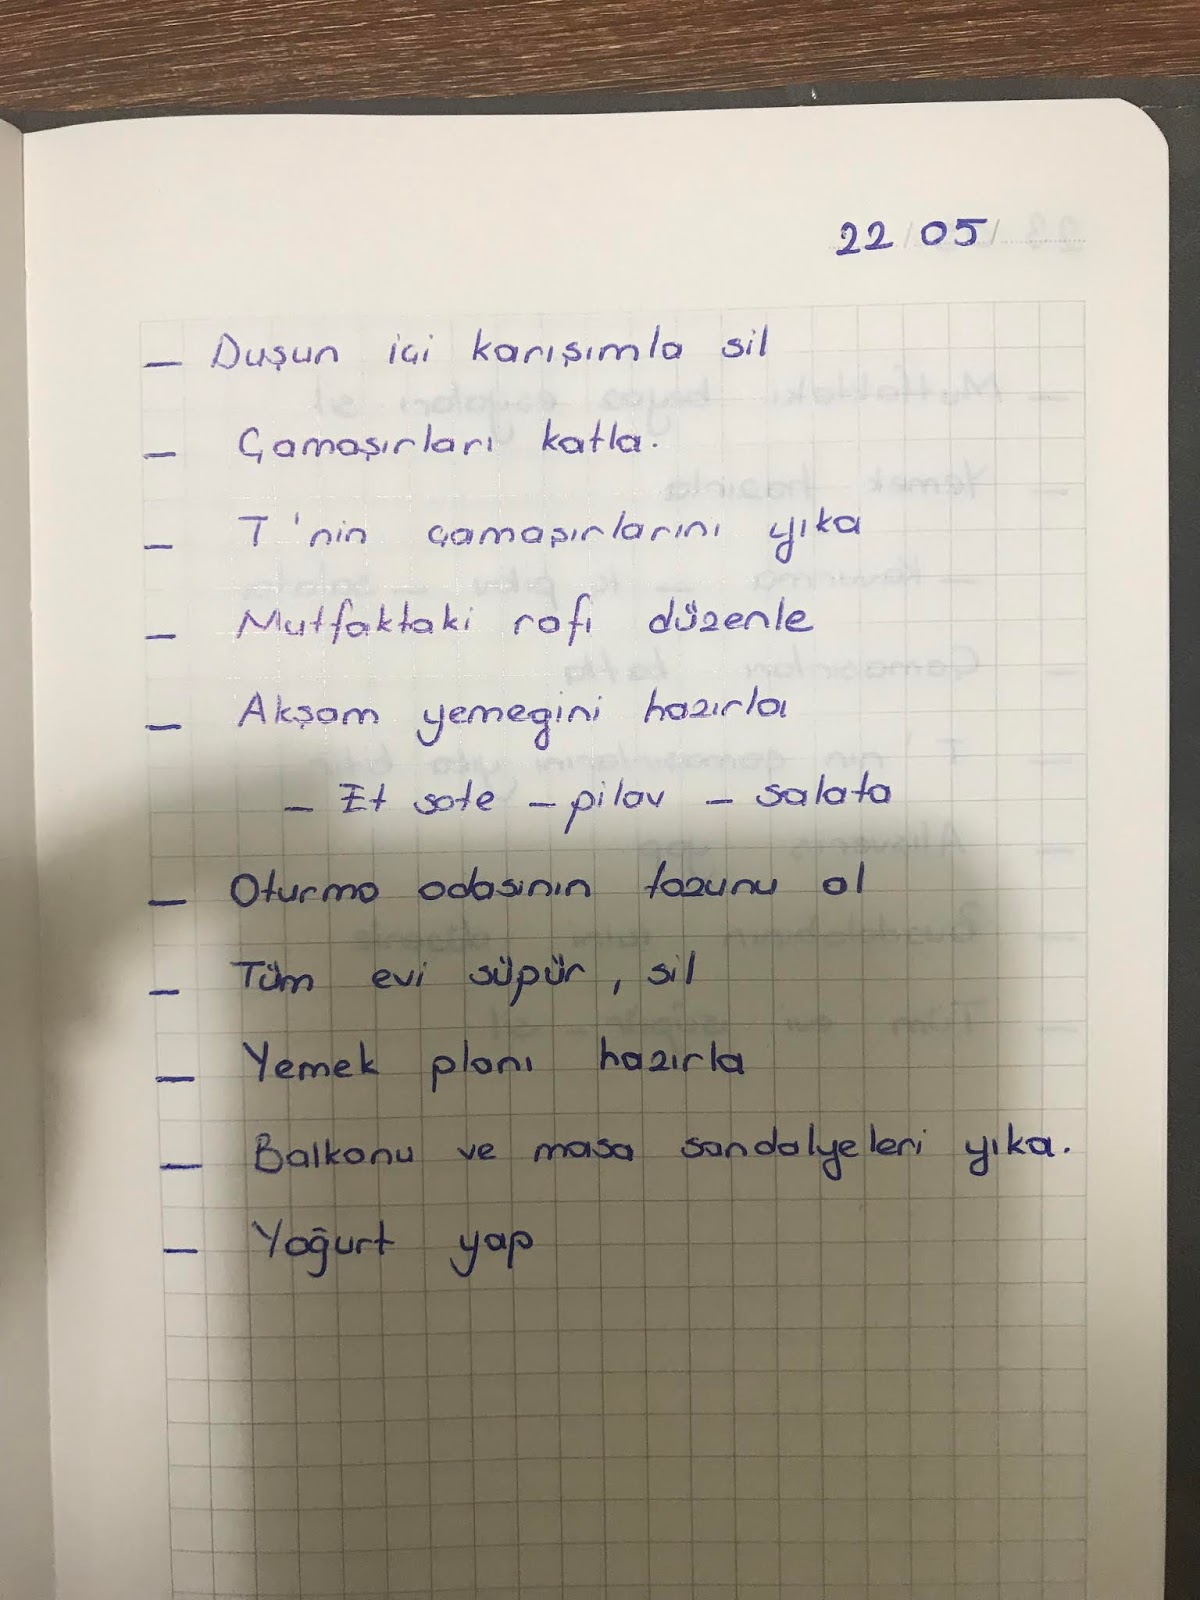 22/05/
- Duşun içi karışımla sil
- Çamaşırları katla.
- T'nin çamaşırlarını yıka
- Mutfaktaki rafı düzenle
- Akşam yemegini hazırla
- Et sote - pilav - salata
- Oturma odasının tozunu al
- Tüm evi süpür, sil
- Yemek planı hazırla
- Balkonu ve masa sandalyeleri yıka.
- Yoğurt yap